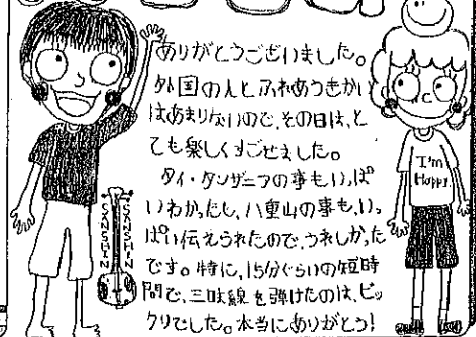 ありがとうございました。
外国の人とふれあうきかい
はあまりないので、その日は、と
ても楽しくすごせました。
タイ・タンザニアの事もいっぱ
いわかったし、八重山の事も、いっ
ぱい伝えられたので、うれしかった
です。特に、15分ぐらいの短時
間で、三味線を弾けたのは、ビッ
クリでした。本当にありがとう!
SANSHIN
SANSHIN
I'm
Happy.